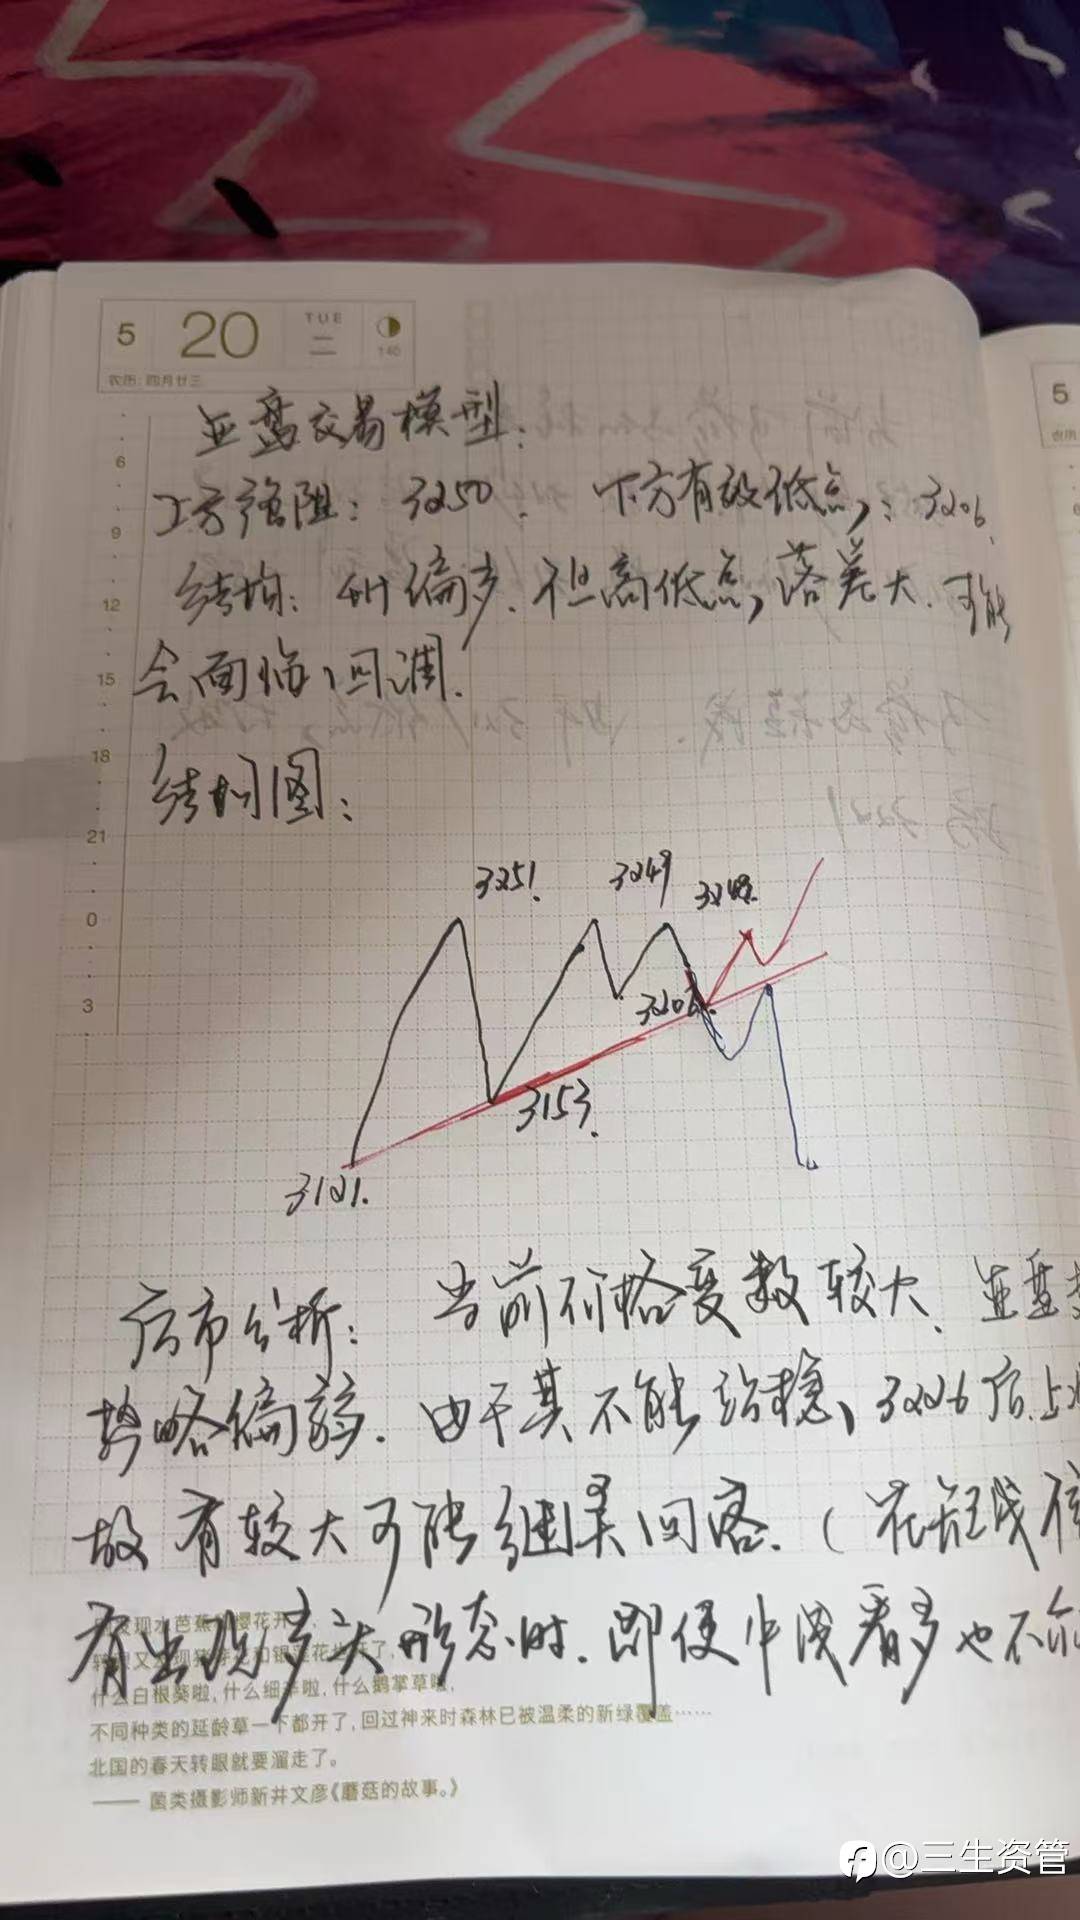 5 20 TUE 二 140
农历:四月廿三
亚盘交易模型:
上方强阻: 3250. 下方有效低点: 3206.
结构: 4H偏多. 但高低点落差大. 可能
会面临回调.
结构图:
6
9
12
15
18
21
0
3
3251.
3249
3248.
3206.
3153.
3121.
后市分析: 当前价格变数较大、亚盘
势略偏弱. 由于其不能站稳、3226后
故有较大可能继续回落. (在短线
有出现多头形态时. 即便中线看多也不
什么白根葵啦,什么细辛啦,什么鹅掌草啦,
不同种类的延龄草一下都开了,回过神来时森林已被温柔的新绿覆盖……
北国的春天转眼就要溜走了。
—— 菌类摄影师新井文彦《蘑菇的故事。》
5
农历
@三生资管